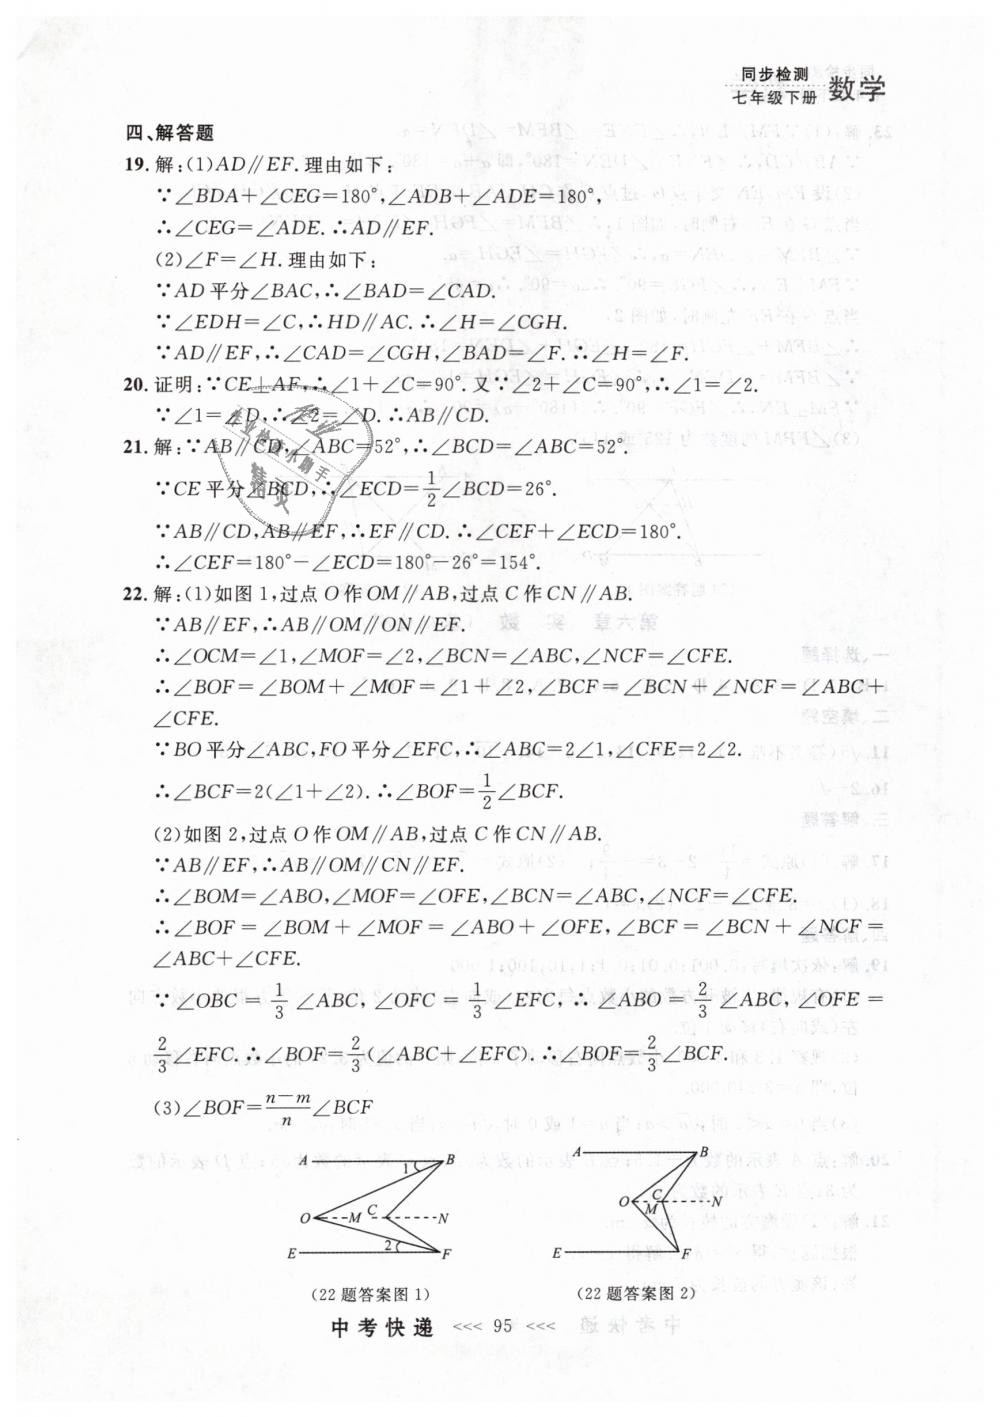 同步检测
七年级下册 数学
四、解答题
19. 解:(1)AD∥EF. 理由如下:
∵∠BDA+∠CEG=180°,∠ADB+∠ADE=180°,
∴∠CEG=∠ADE. ∴AD∥EF.
(2)∠F=∠H. 理由如下:
∵AD平分∠BAC,∴∠BAD=∠CAD.
∵∠EDH=∠C,∴HD∥AC. ∴∠H=∠CGH.
∵AD∥EF,∴∠CAD=∠CGH,∠BAD=∠F. ∴∠H=∠F.
20. 证明:∵CE⊥AF,∴∠1+∠C=90°. 又∵∠2+∠C=90°,∴∠1=∠2.
∵∠1=∠D,∴∠2=∠D. ∴AB∥CD.
21. 解:∵AB∥CD,∠ABC=52°,∴∠BCD=∠ABC=52°.
∵CE平分∠BCD,∴∠ECD=1/2∠BCD=26°.
∵AB∥CD,AB∥EF,∴EF∥CD. ∴∠CEF+∠ECD=180°.
∴∠CEF=180°-∠ECD=180°-26°=154°.
22. 解:(1)如图1,过点O作OM∥AB,过点C作CN∥AB.
∵AB∥EF,∴AB∥OM∥ON∥EF.
∴∠OCM=∠1,∠MOF=∠2,∠BCN=∠ABC,∠NCF=∠CFE.
∴∠BOF=∠BOM+∠MOF=∠1+∠2,∠BCF=∠BCN+∠NCF=∠ABC+
∠CFE.
∵BO平分∠ABC,FO平分∠EFC,∴∠ABC=2∠1,∠CFE=2∠2.
∴∠BCF=2(∠1+∠2). ∴∠BOF=1/2∠BCF.
(2)如图2,过点O作OM∥AB,过点C作CN∥AB.
∵AB∥EF,∴AB∥OM∥CN∥EF.
∴∠BOM=∠ABO,∠MOF=∠OFE,∠BCN=∠ABC,∠NCF=∠CFE.
∴∠BOF=∠BOM+∠MOF=∠ABO+∠OFE,∠BCF=∠BCN+∠NCF=
∠ABC+∠CFE.
∵∠OBC=1/3∠ABC,∠OFC=1/3∠EFC,∴∠ABO=2/3∠ABC,∠OFE=
2/3∠EFC. ∴∠BOF=2/3(∠ABC+∠EFC). ∴∠BOF=2/3∠BCF.
(3)∠BOF=n-m/n∠BCF
A 1 B
O M C N
E 2 F
(22题答案图1)
A B
O C M N
E F
(22题答案图2)
中考快递 <<< 95 <<<